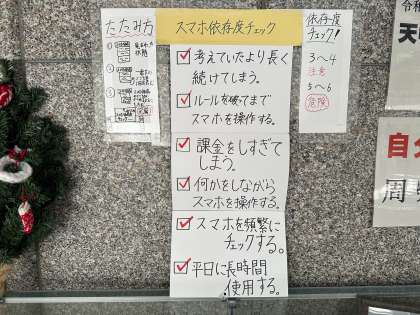 たたみ方
スマホ依存度チェック
考えていたより長く
続けてしまう。
ルールを破ってまで
スマホを操作する。
課金をしすぎて
しまう。
何かをしながら
スマホを操作する。
スマホを頻繁に
チェックする。
平日に長時間
使用する。
依存度
チェック!
3〜4
注意
5〜6
危険
令和
天
自
周